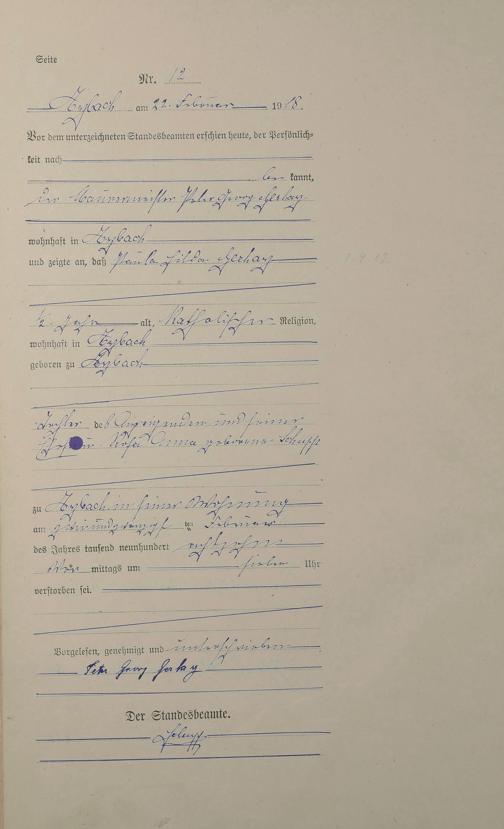 Seite
Nr. 12
Aybach am 22. Februar 1918.
Vor dem unterzeichneten Standesbeamten erschien heute, der Persönlich-
keit nach
be kannt,
der Maurermeister Peter Georg Gerhay
wohnhaft in Aybach
und zeigte an, daß Paula Hilda Gerhay
1/2 Jahr alt, Katholischer Religion,
wohnhaft in Aybach
geboren zu Aybach
Tochter des Anzeigenden und seiner
Ehefrau Rosa Anna geborene
zu Aybach in seiner Wohnung
am zweiundzwanzig ten Februar
des Jahres tausend neunhundert achtzehn
Vor mittags um sieben Uhr
verstorben sei.
Vorgelesen, genehmigt und unterschrieben
Peter Georg Gerhay
Der Standesbeamte.